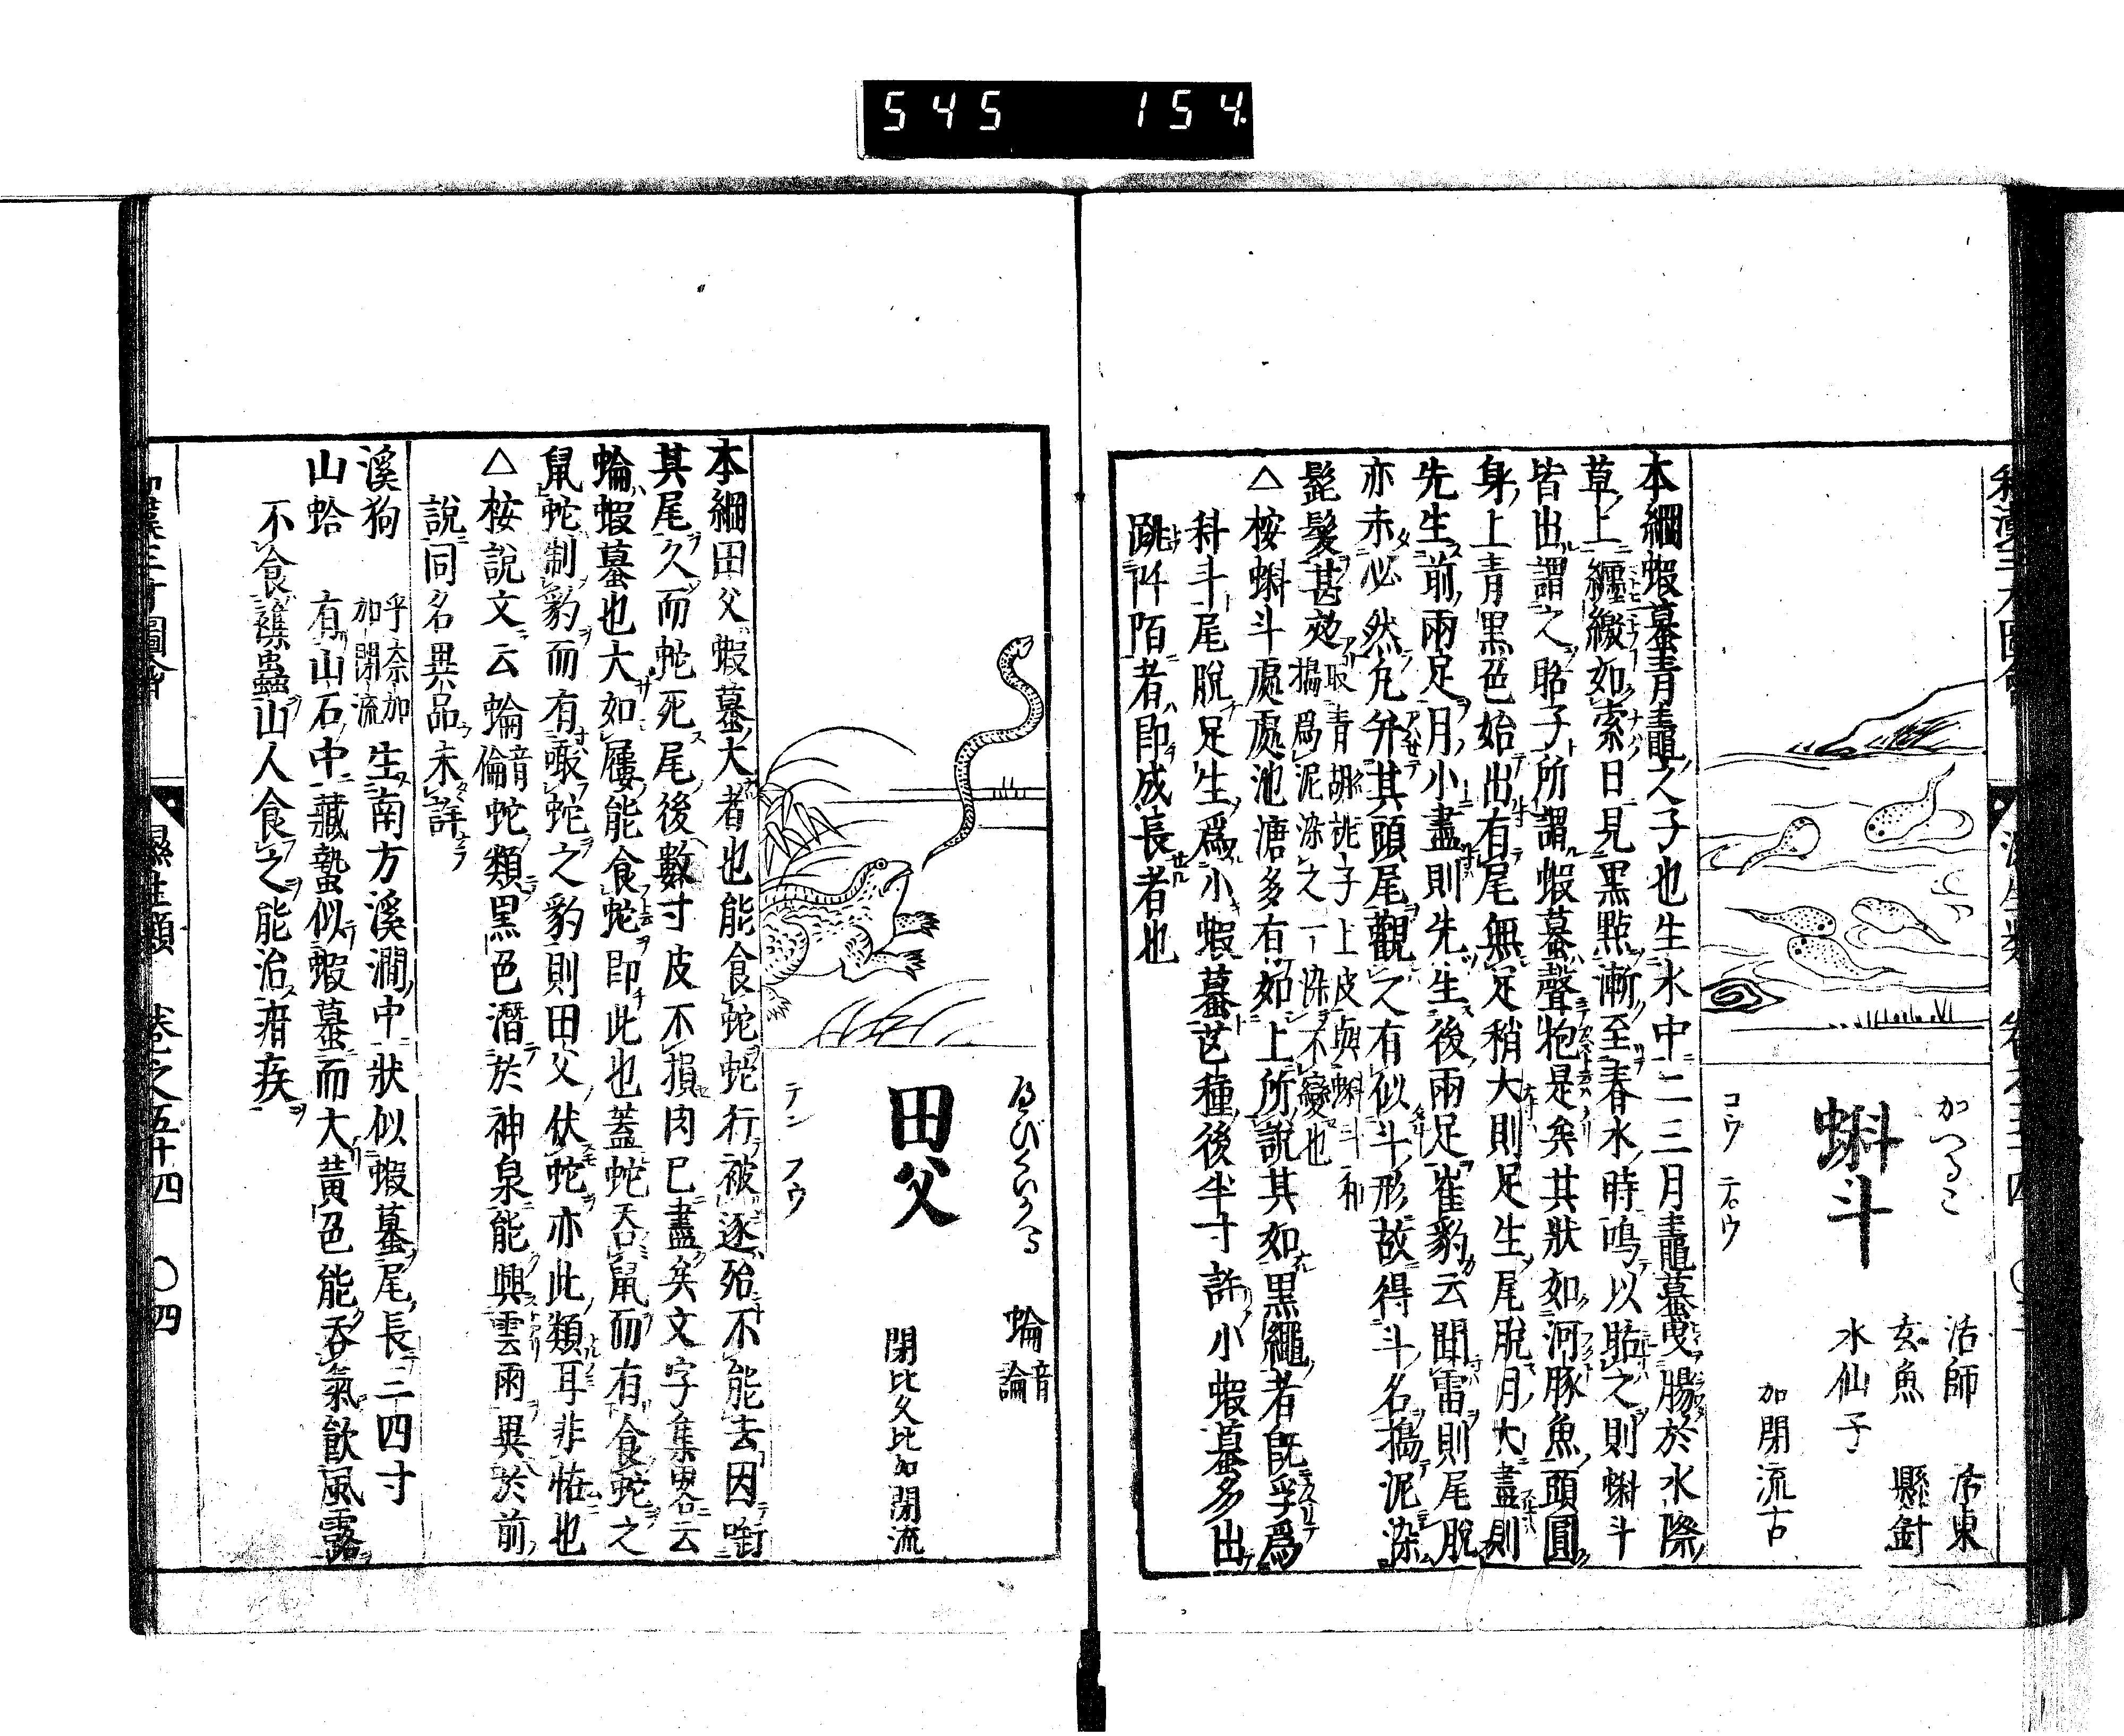 545 154
かへるこ
活師 活東
玄魚 懸針
水仙子
蝌斗
加閉流古
コウ テ゚ウ
本綱蝦蟇青鼃之子也生水中二三月鼃蟇曳腸於水際
草上纏繳如索日見黒點漸至春水時鳴以聒之則蝌斗
皆出謂之聒子所謂蝦蟇聲抱是矣其狀如河豚魚頭圓
身上青黒色始出有尾無足稍大則足生尾脫月大盡則
先生前兩足月小盡則先生後兩足崔豹云聞雷則尾脫
亦未必然凡弁其頭尾觀之有似斗形故得斗名搗泥染
髭髮甚效取青胡桃子上皮與蝌斗和
搗爲泥染之一染不變也
△桉蝌斗處處池溏多有如上所說其如黒繩者旣孚爲
科斗尾脫足生爲小蝦蟇芒種後半寸許小蝦蟇多出
跳阡陌者即成長者也
へびくいかへる
蜦
音論
田父
閉比久比加閉流
テン フウ
本綱田父蝦蟇大者也能食蛇蛇行被逐殆不能去因銜
其尾久而蛇死尾後數寸皮不損肉已盡矣文字集畧云
蜦蝦蟇也大如屨能食蛇即此也蓋蛇吞鼠而有食蛇之
鼠蛇制豹而有噉蛇之豹則田父伏蛇亦此類耳非怪也
△桉說文云蜦音倫蛇類黒色潛於神泉能興雲雨異於前
說同名異品未詳
溪狗 乎奈加
加閉流 生南方溪澗中狀似蝦蟇尾長三四寸
山蛤 有山石中藏蟄似蝦蟇而大黃色能吞氣飮風露
不食襍蟲山人食之能治疳疾
濕生類 卷之五十四 〇四